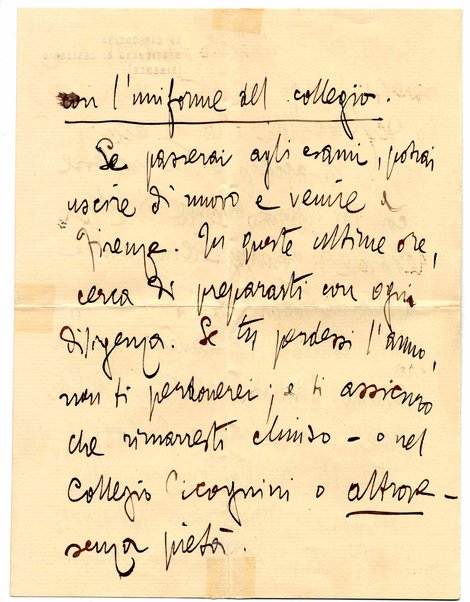 con l'uniforme del collegio.
Se passerai agli esami, potrai
uscire di nuovo e venire a
Firenze. In queste ultime ore,
cerca di prepararti con ogni
diligenza. Se tu perdessi l'anno,
non ti perdonerei; e ti assicuro
che rimarresti chiuso – o nel
Collegio Cicognini o altrove –
senza pietà.